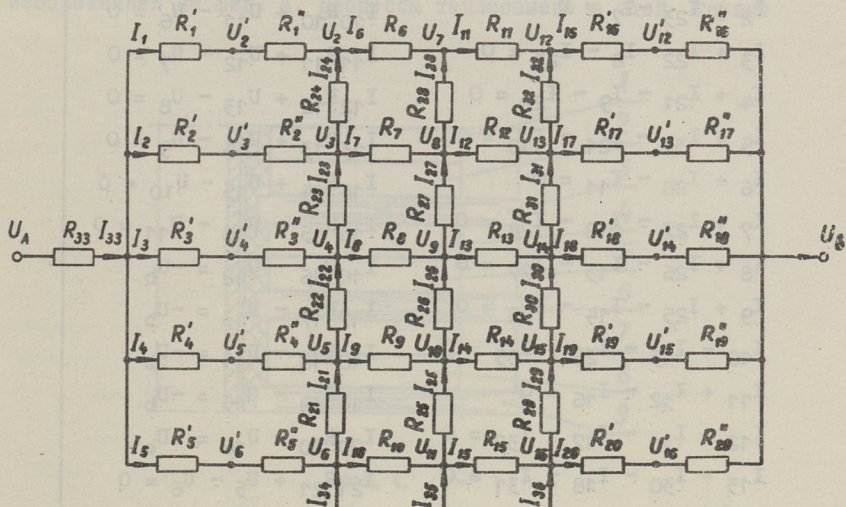 I₁ R₁' U₂' R₁ U₂ I₆ R₆ U₇ I₁₁ R₁₁ U₁₂ I₁₆ R₁₆ U₁₂' R₁₆"
R₂₄ I₂₄ R₂₈ I₂₈ R₃₂ I₃₂
I₂ R₂' U₃' R₂" U₃ I₇ R₇ U₈ I₁₂ R₁₂ U₁₃ I₁₇ R₁₇' U₁₃' R₁₇"
R₂₃ I₂₃ R₂₇ I₂₇ R₃₁ I₃₁
U_A R₃₃ I₃₃ I₃ R₃' U₄' R₃" U₄ I₈ R₈ U₉ I₁₃ R₁₃ I₁₈ R₁₈' U₁₄' R₁₈"
R₂₂ I₂₂ R₂₆ I₂₆ R₃₀ I₃₀
I₄ R₄' U₅' R₄" U₅ I₉ R₉ U₁₀ I₁₄ R₁₄ U₁₅ I₁₉ R₁₉' U₁₅' R₁₉"
R₂₁ I₂₁ R₂₅ I₂₅ I₂₉
I₅ R₅' U₆' R₅" U₆ R₁₀ U₁₁ I₁₅ R₁₅ I₂₀ R₂₀' U₁₆' R₂₀"
I₃₄ I₃₅ I₃₆